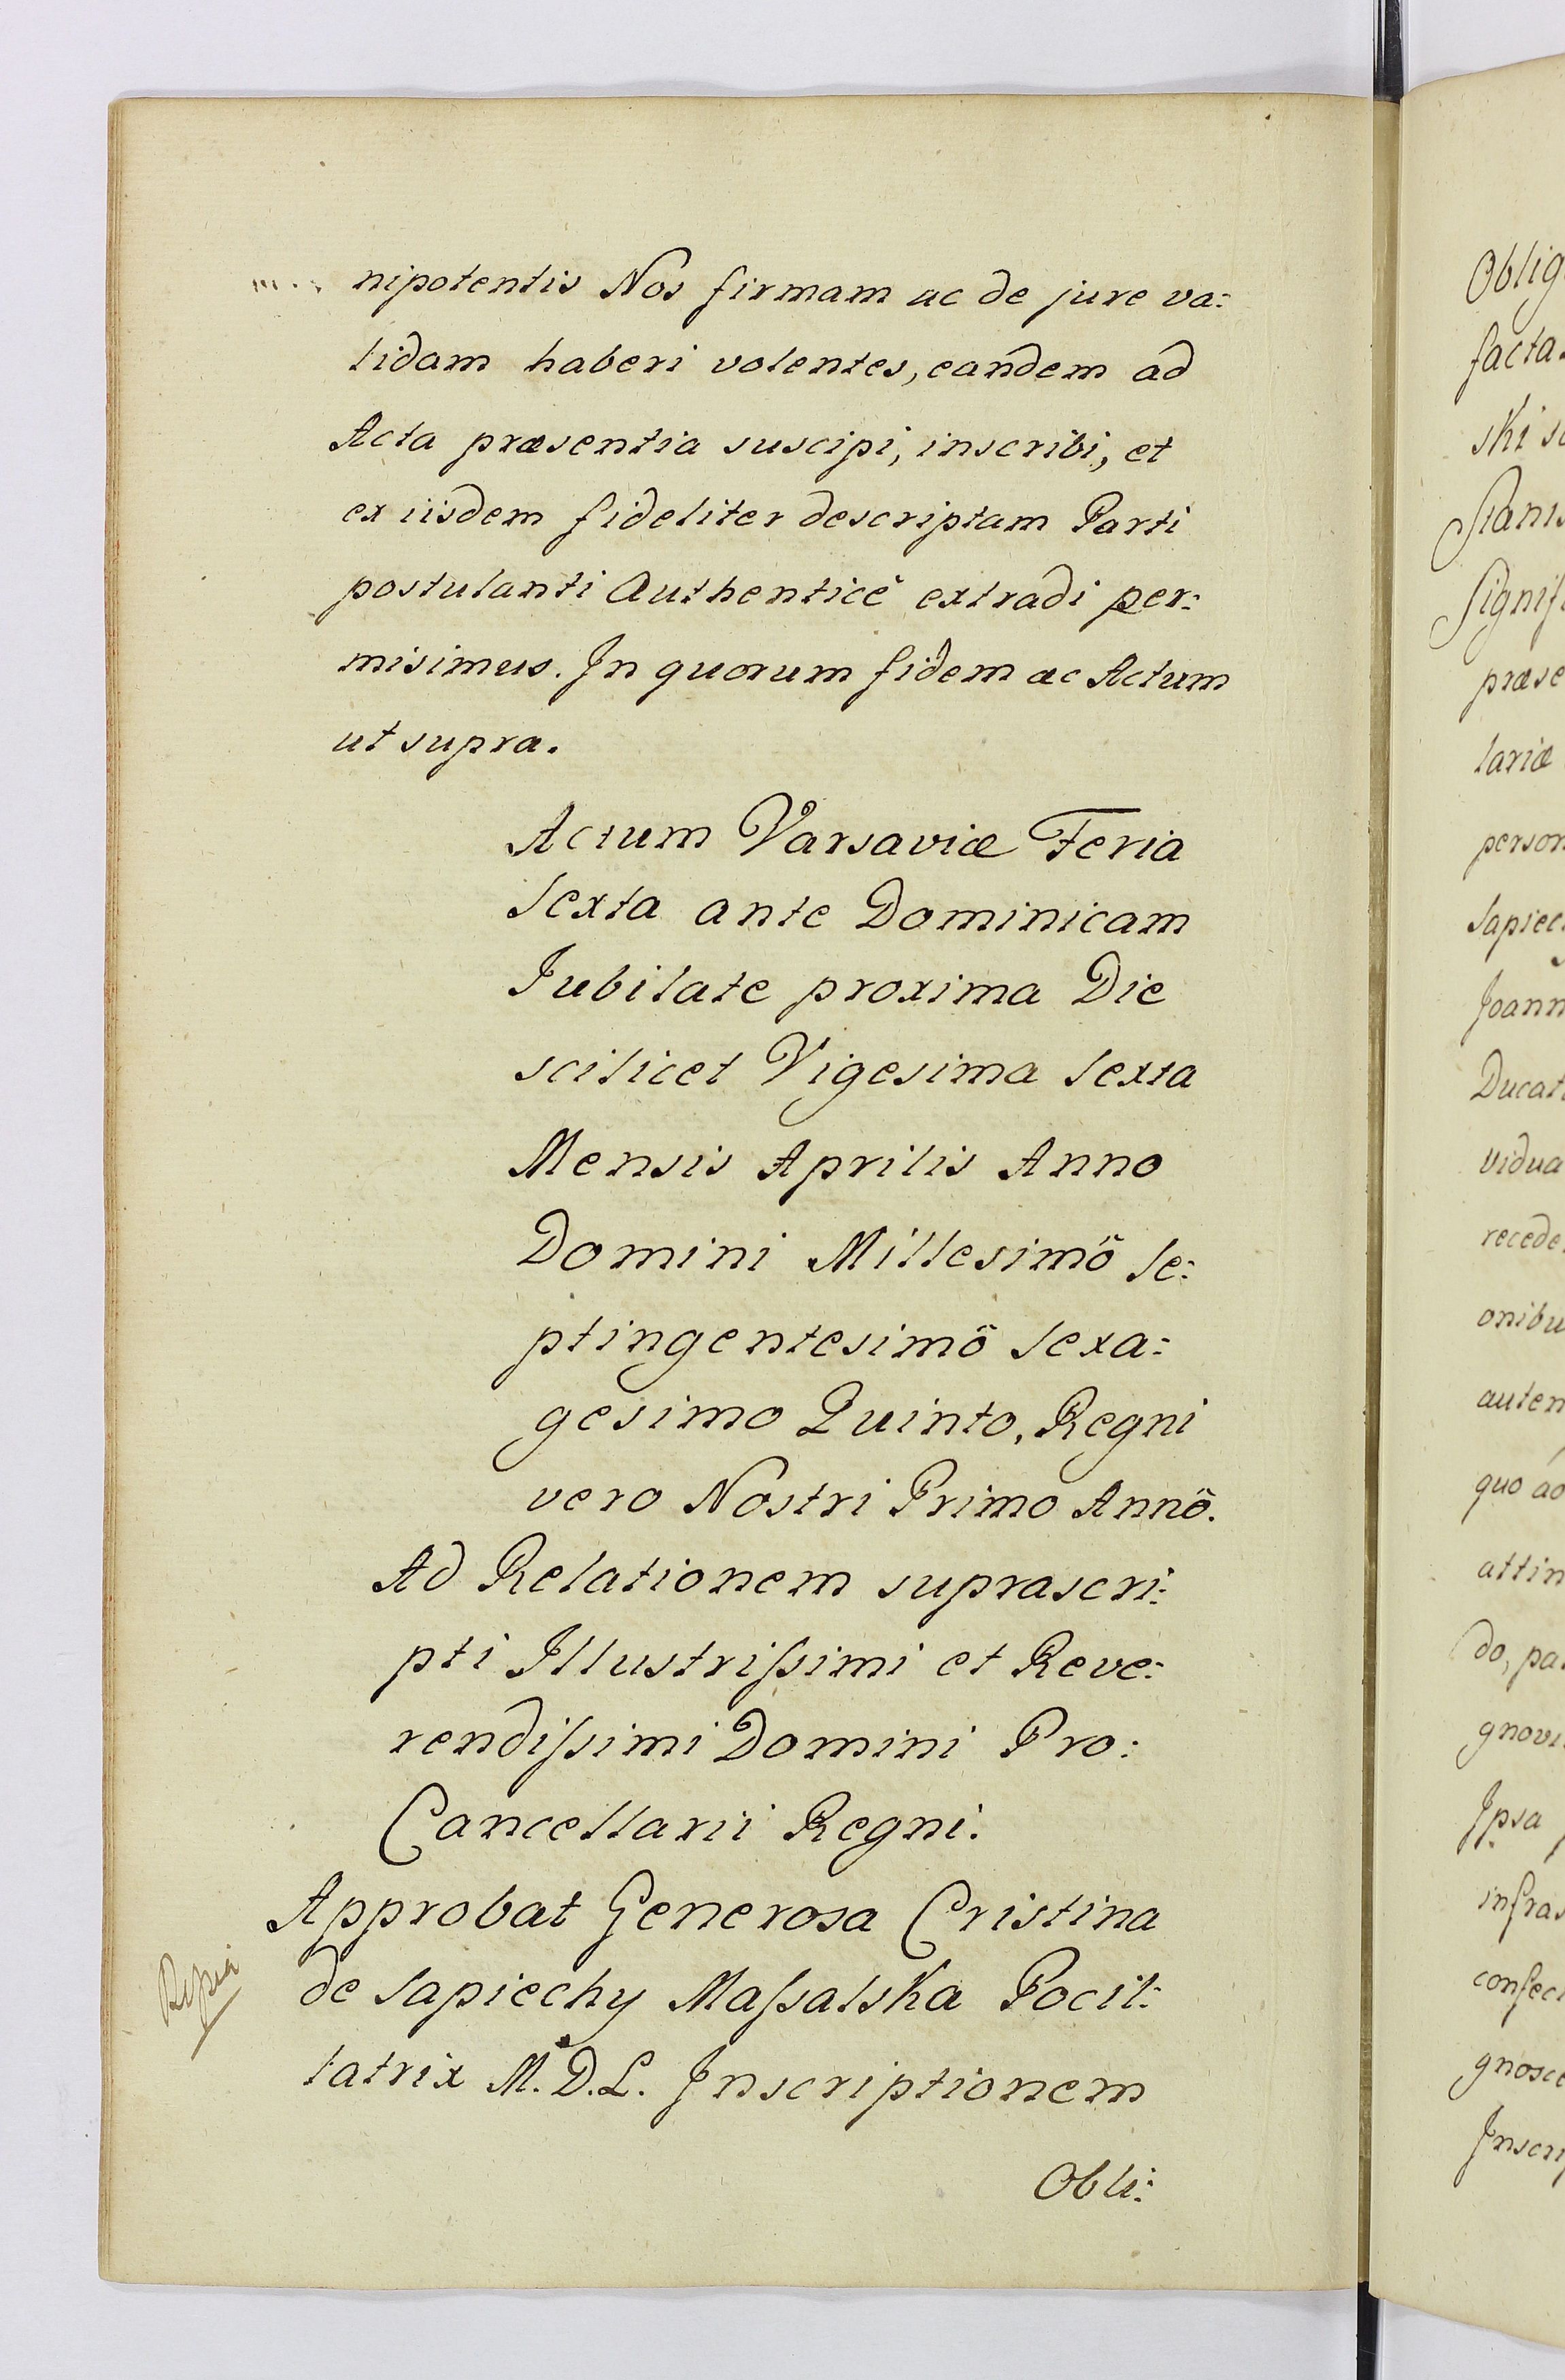 nipotentis Nos firmam ac de jure va:
lidam haberi volentes, eandem ad
Acta præsentia suscipi, inscribi, et
ex iisdem fideliter descriptam Parti
postulanti Authenticè extradi per:
misimus. In quorum fidem ac Actum
ut supra.
Actum Varsaviæ Feria
Sexta ante Dominicam
Jubilate proxima Die
scilicet Vigesima Sexta
Mensis Aprilis Anno
Domini Millesimô Se:
ptingentesimô Sexa:
gesimo Quinto, Regni
vero Nostri Primo Annô.
Ad Relationem suprascri:
pti Illustrissimi et Reve:
rendissimi Domini Pro:
Cancellarii Regni.
Approbat Generosa Cristina
de Sapiechy Massalska Pocil:
latrix M.D.L. Inscriptionem
Obli:
Oblig
facta.
ski
Stanis
Signif
præse
lariæ
person
Sapiec
Joann
Ducat
vidua
recede
onibu
autem
quo ad
attin
do, pa
gnovi
Ipsa
infras
confect
gnosce
Inscrip